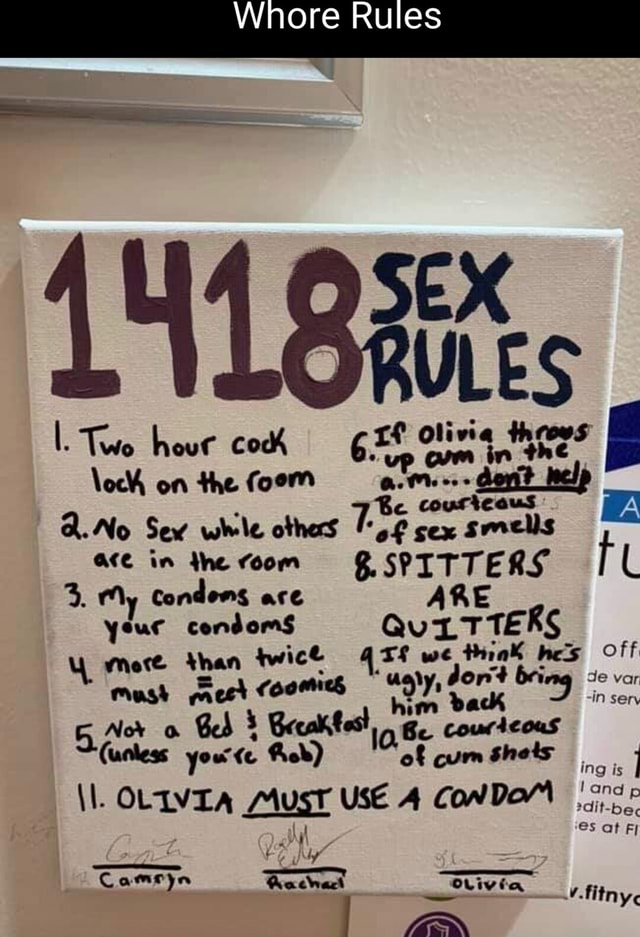 Whore Rules
1418 SEX
RULES
1. Two hour cock
lock on the room
2. No Sex while others
are in the room
3. My condoms are
your condoms
4. more than twice
must meet roomies
5. Not a Bed & Breakfast
(unless you're Rob)
6. If Olivia throws
up cum in the
a.m.... don't help
7. Be courteous
of sex smells
8. SPITTERS
ARE
QUITTERS
9. If we think he's
ugly, don't bring
him back
10. Be courteous
of cum shots
11. OLIVIA MUST USE A CONDOM
Camryn
Rachael
OLivia
A
tu
off
de var
-in serv
ing is
l and p
edit-bec
es at FI
v.fitnyc